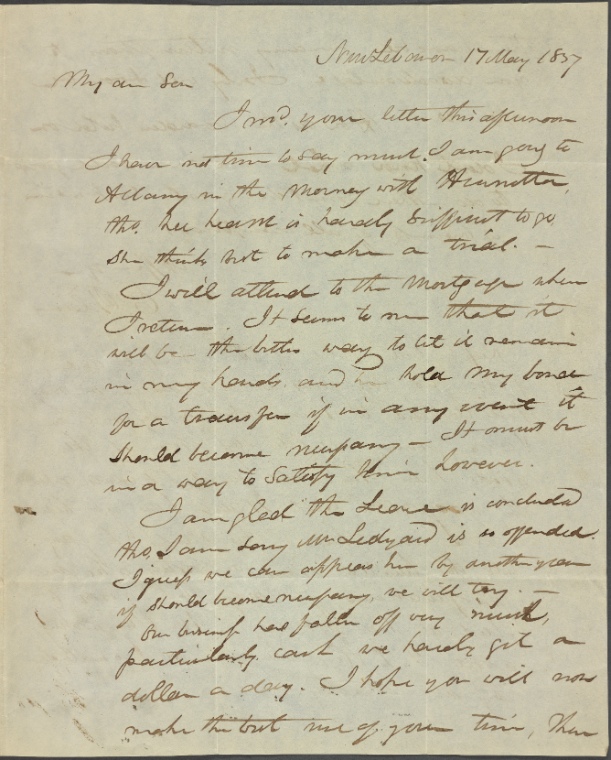 New Lebanon 17 May 1837
My dear Son
I recd. your letter this afternoon
I have not time to say much. I am going to
Albany in the Morning with Henrietta,
tho. her heart is hardly sufficient to go
She thinks best to make a trial. —
I will attend to the Mortgage when
I return. It seems to me that it
will be the better way to let it remain
in my hands and hold my bond
for a transfer if in any event it
should become necessary — It must be
in a way to Satisfy him however.
I am glad the Lease is concluded
tho. I am sorry Mr Ledyard is so offended.
I guess we can appease him by another year
if should become necessary, we will try. —
Our business has fallen off very much,
particularly cash we hardly get a
dollar a day. I hope you will now
make the best use of your time, then